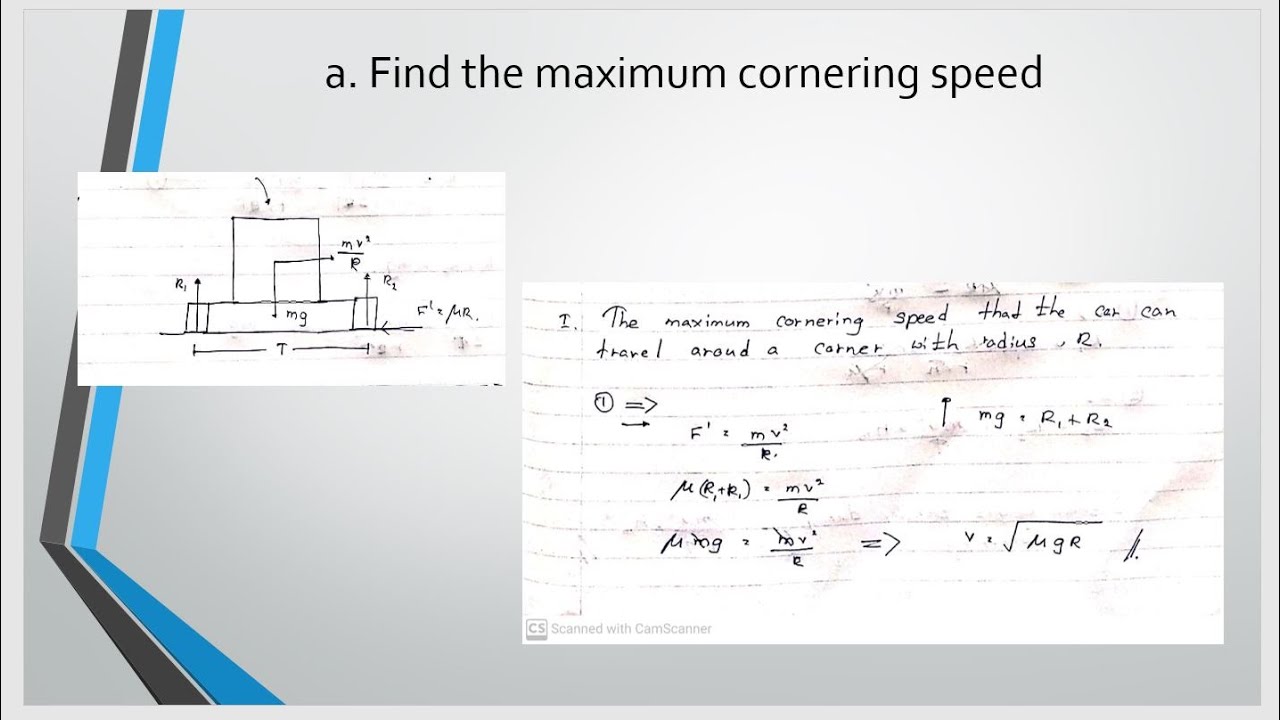 a. Find the maximum cornering speed
mv²
R
R₁
R₂
mg
F' = μR.
T
I. The maximum cornering speed thad the car can
travel aroud a corner with radius, R.
① =>
F' = mv²
R.
↑ mg = R₁ + R₂
μ(R₁+R₁) = mv²
R
μmg = mv²
R
=> v = √μgR //.
CS Scanned with CamScanner